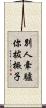 別人牽驢
你拔橛子